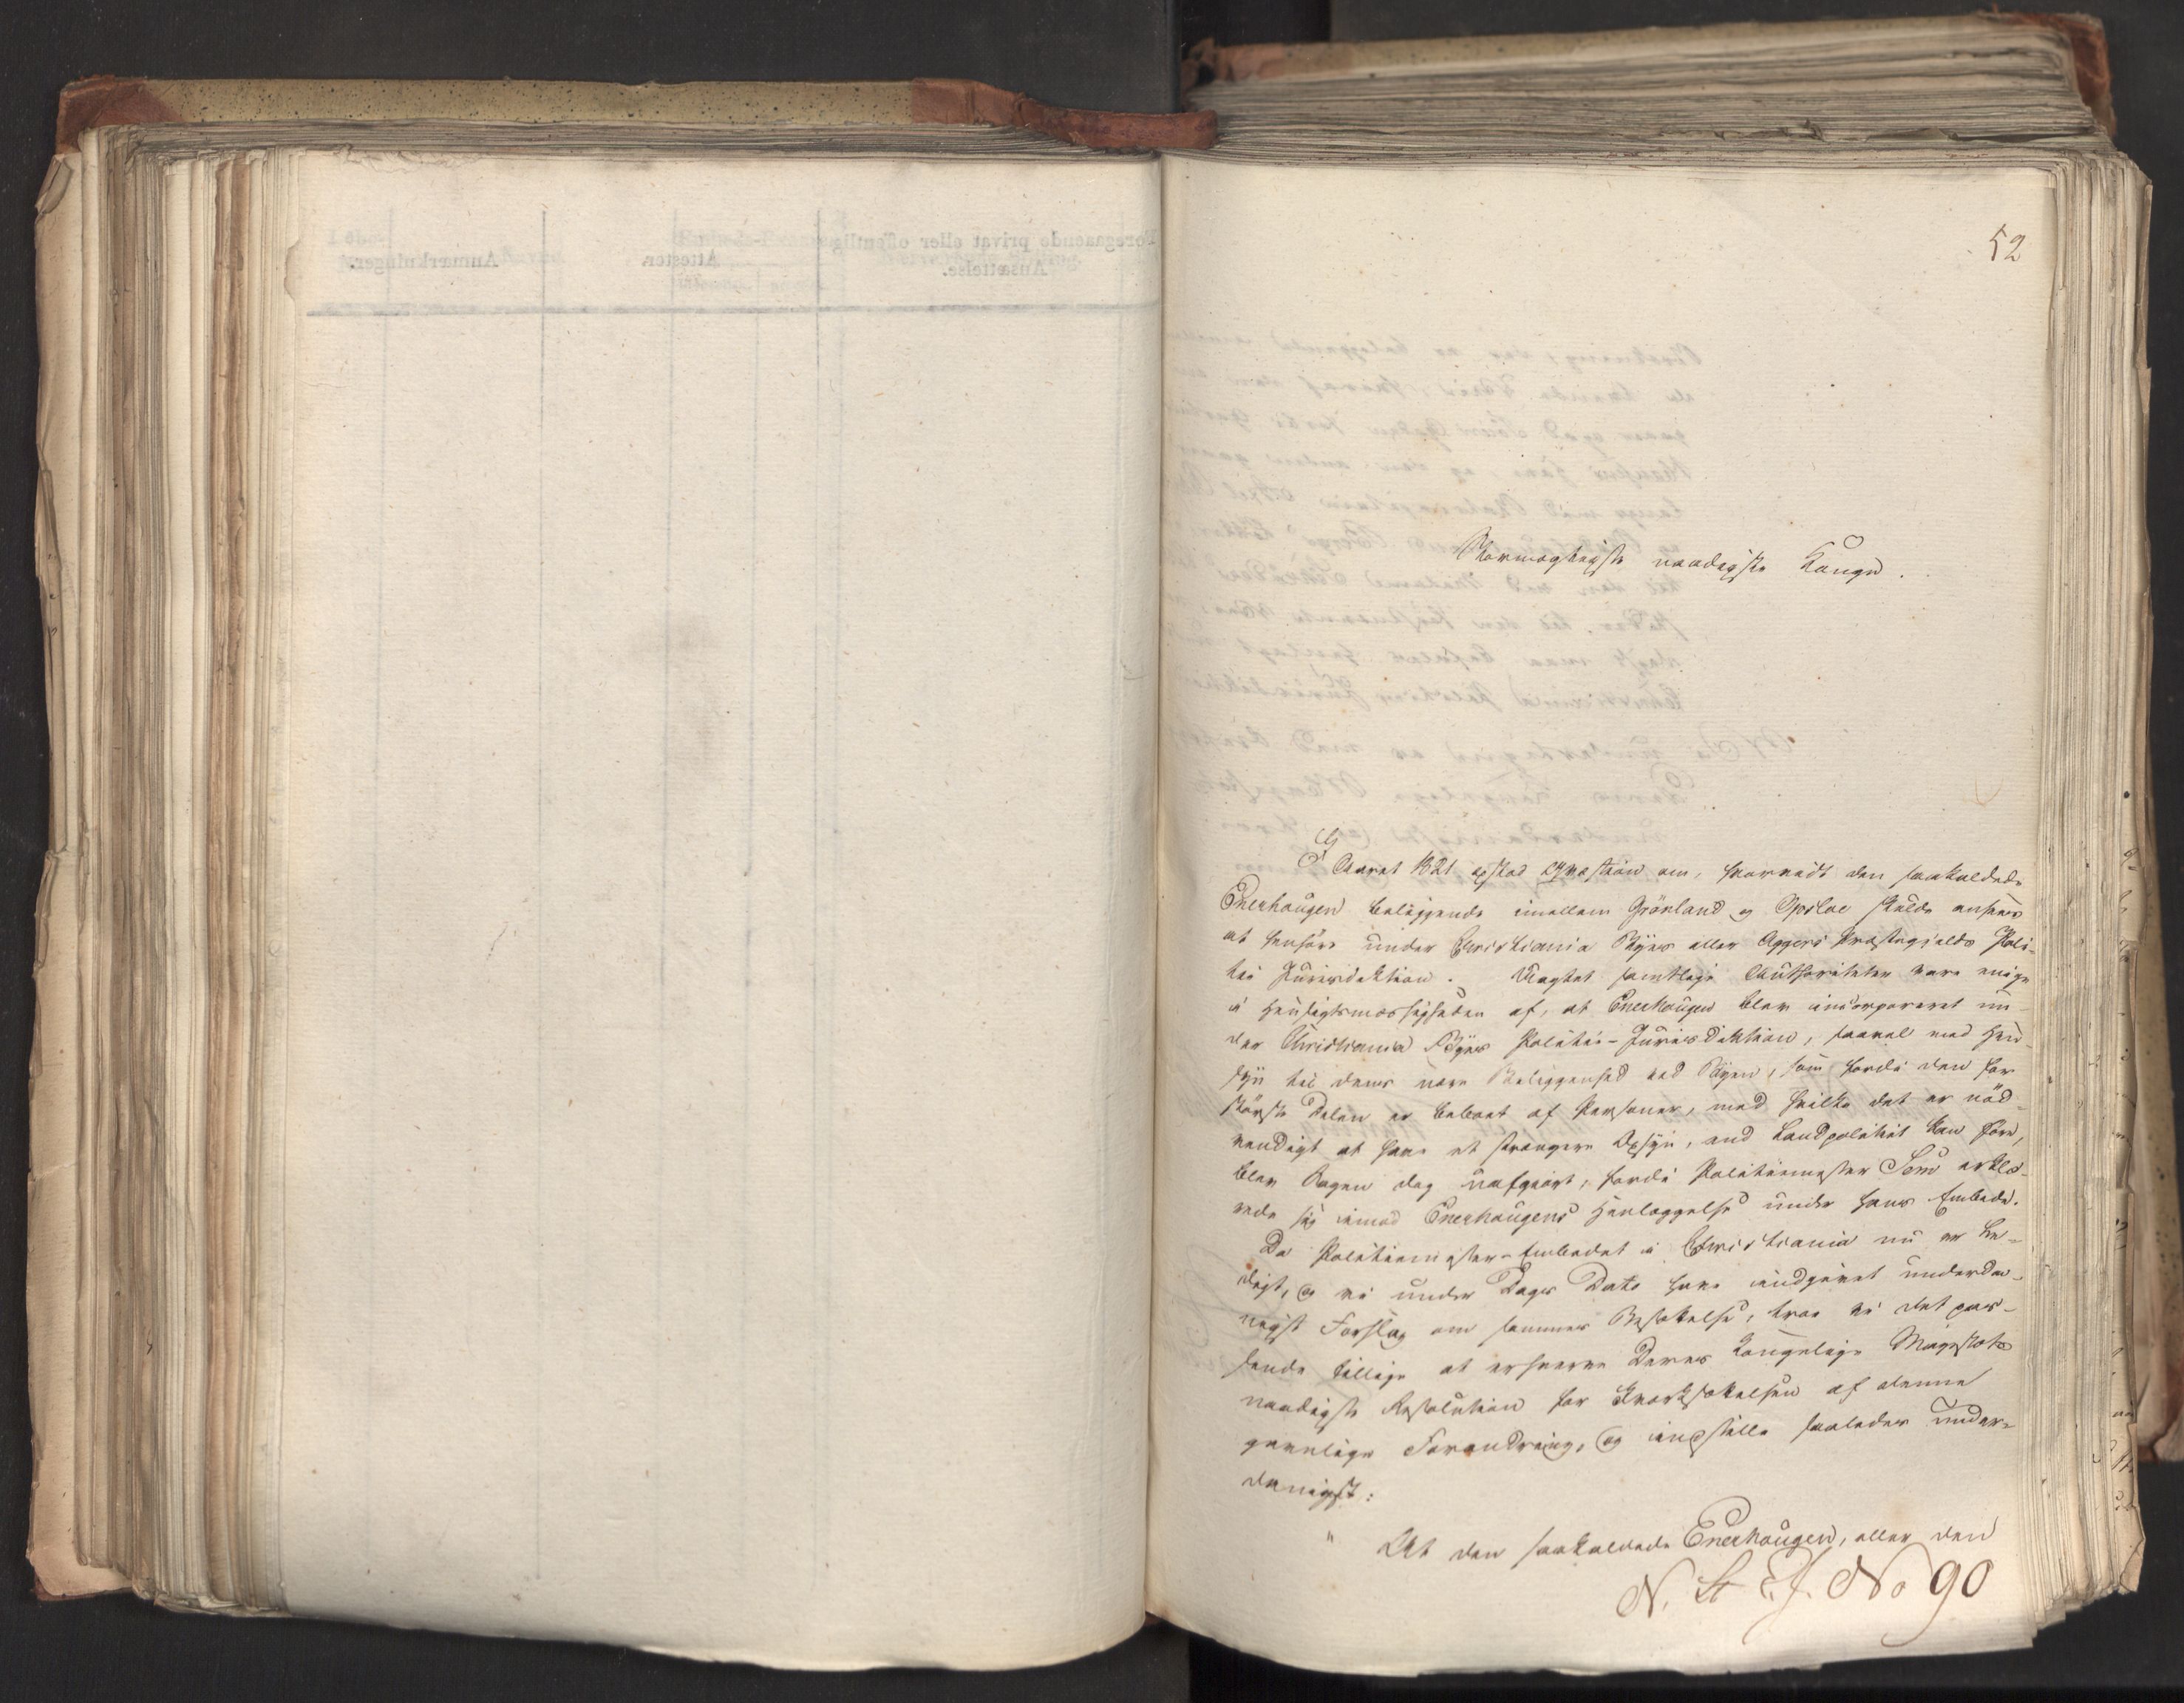 52
Stormægtigste naadigste Konge.
I Aaret 1821 opstod Qvæstion om, hvorvidt den saakaldede
Enerhaugen beliggende imellem Grönland og Opsloe skulde ansees
at henhöre under Christiania Byes eller Aggers Præstegjelds Poli-
tie Jurisdiktion. Uagtet samtlige Authoriteter vare enige
i Hensigtsmæssigheden af, at Enerhaugen blev incorporeret un-
der Christiania Byes Politie-Jurisdiktion, saavel med Hen-
syn til dens nære Beliggenhed ved Byen, som fordi den for
störste Delen er beboet af Personer, med hvilke det er nöd-
vendigt at have et strængere Opsyn, end Landpolitiet kan före,
blev Sagen dog uafgjort, fordi Politiemester Sem erklæ-
rede sig imod Enerhaugens Henlæggelse under hans Embede.
Da Politiemester-Embedet i Christiania nu er le-
digt, og vi under Dags Dato have indgivet underda-
nigst Forslag om sammes Besættelse, troe vi det pas-
sende tillige at erhverve Deres Kongelige Majestæts
naadigste Resolution for Iværksættelsen af denne
gavnlige Forandring, og indstille saaledes under-
danigst:
" At den saakaldede Enerhaugen, eller den
N. St. E. J. No 90